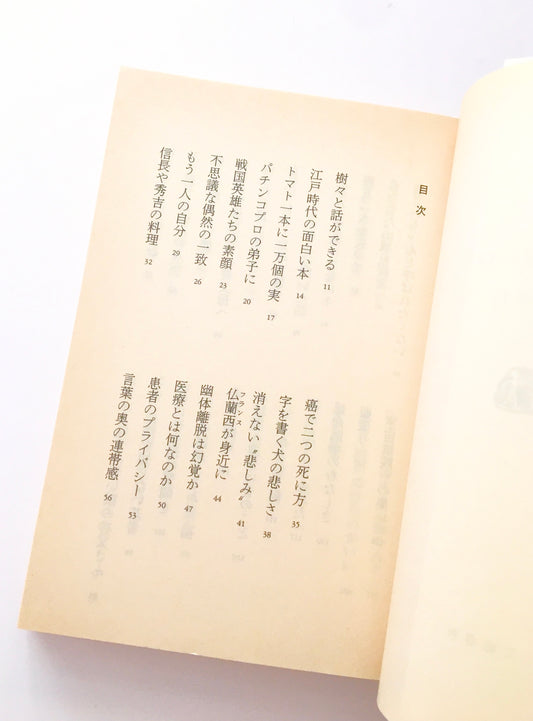 目次
樹々と話ができる 11
江戸時代の面白い本 14
トマト一本に一万個の実 17
パチンコプロの弟子に 20
戦国英雄たちの素顔 23
不思議な偶然の一致 26
もう一人の自分 29
信長や秀吉の料理 32
癌で二つの死に方 35
字を書く犬の悲しさ 38
消えない〝悲しみ〟 41
仏蘭西が身近に 44
フランス
幽体離脱は幻覚か 47
医療とは何なのか 50
患者のプライバシー 53
言葉の奥の連帯感 56